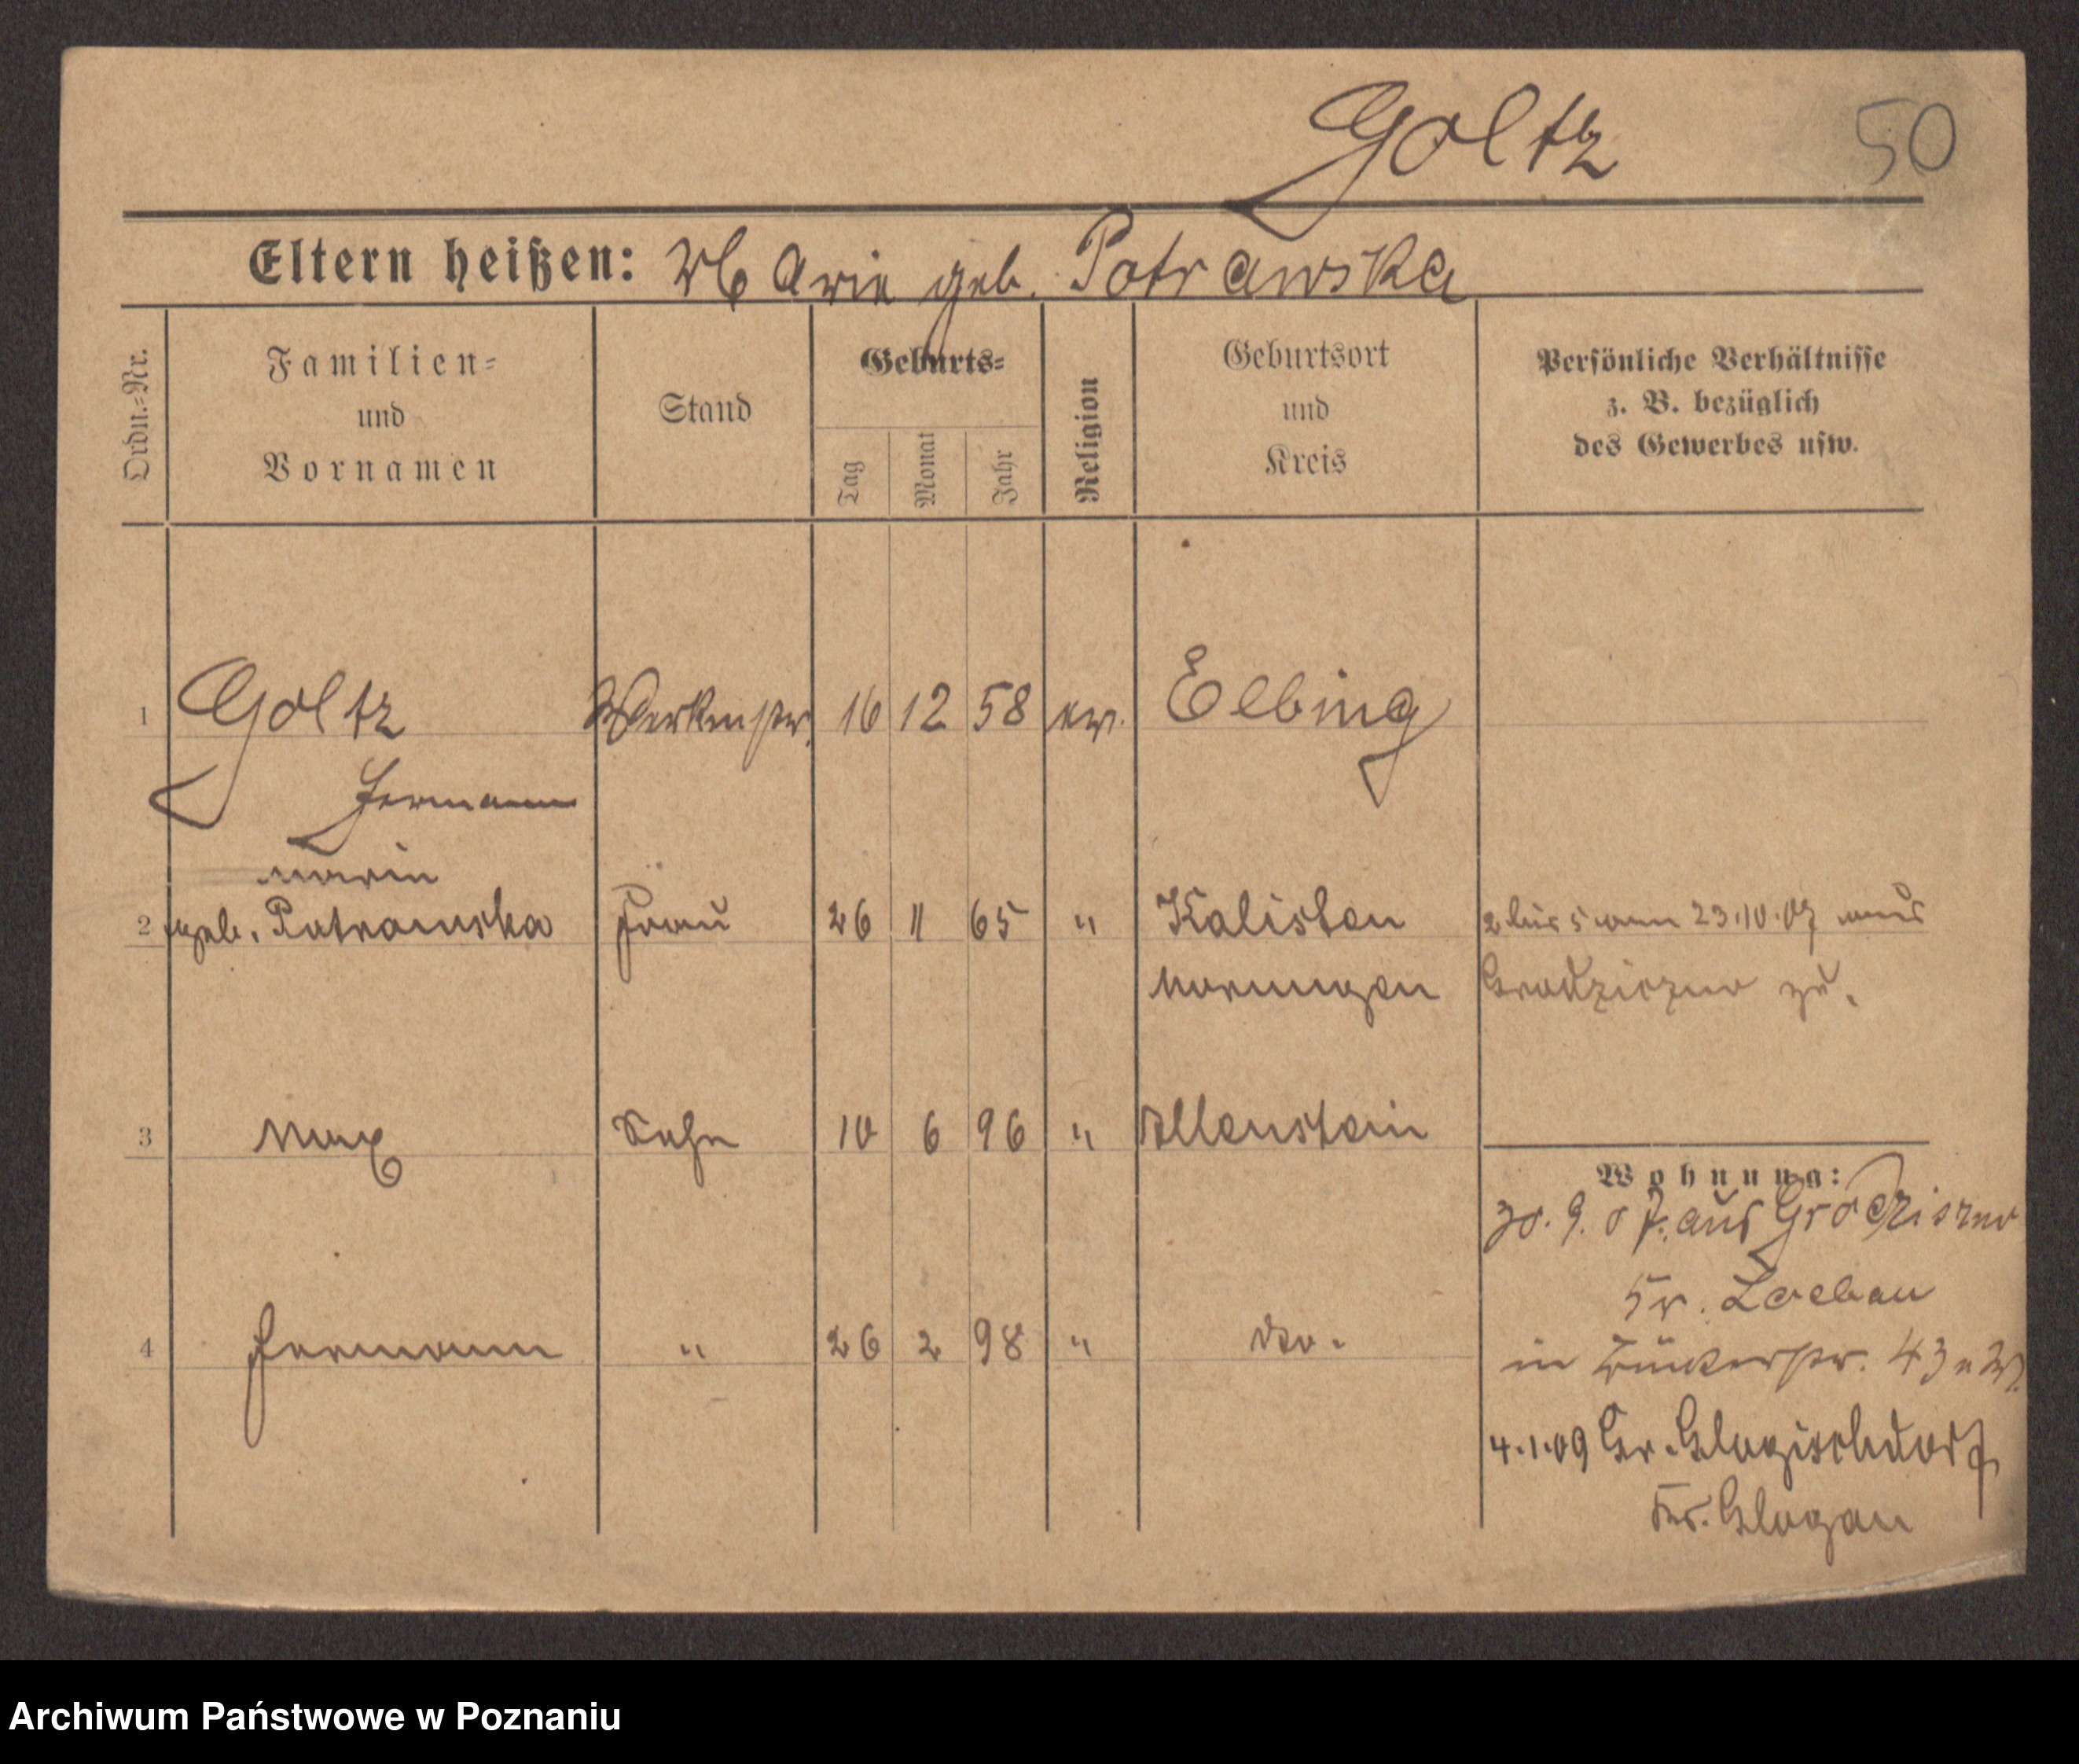 Goltz 50
Eltern heißen: Marie geb. Potrawska
Ordn.-Nr.
Familien-
und
Vornamen
Stand
Geburts-
Tag
Monat
Jahr
Religion
Geburtsort
und
Kreis
Persönliche Verhältnisse
z. B. bezüglich
des Gewerbes usw.
1 Goltz 16 12 58 Elbing
Hermann
Marie
2 geb. Potrawska Frau 26 11 65 " Kalisten 2 bis 5 am 23.10.07 aus
Morungen Grodziczno zu.
3 Max Sohn 10 6 96 " Allenstein
Wohnung:
30. 9. 07. aus Grodziczno
Kr. Loebau
4 Hermann " 26 2 98 " do.
in 43
4.1.09 Gr. Glogischdorf
Kr. Glogau
Archiwum Państwowe w Poznaniu